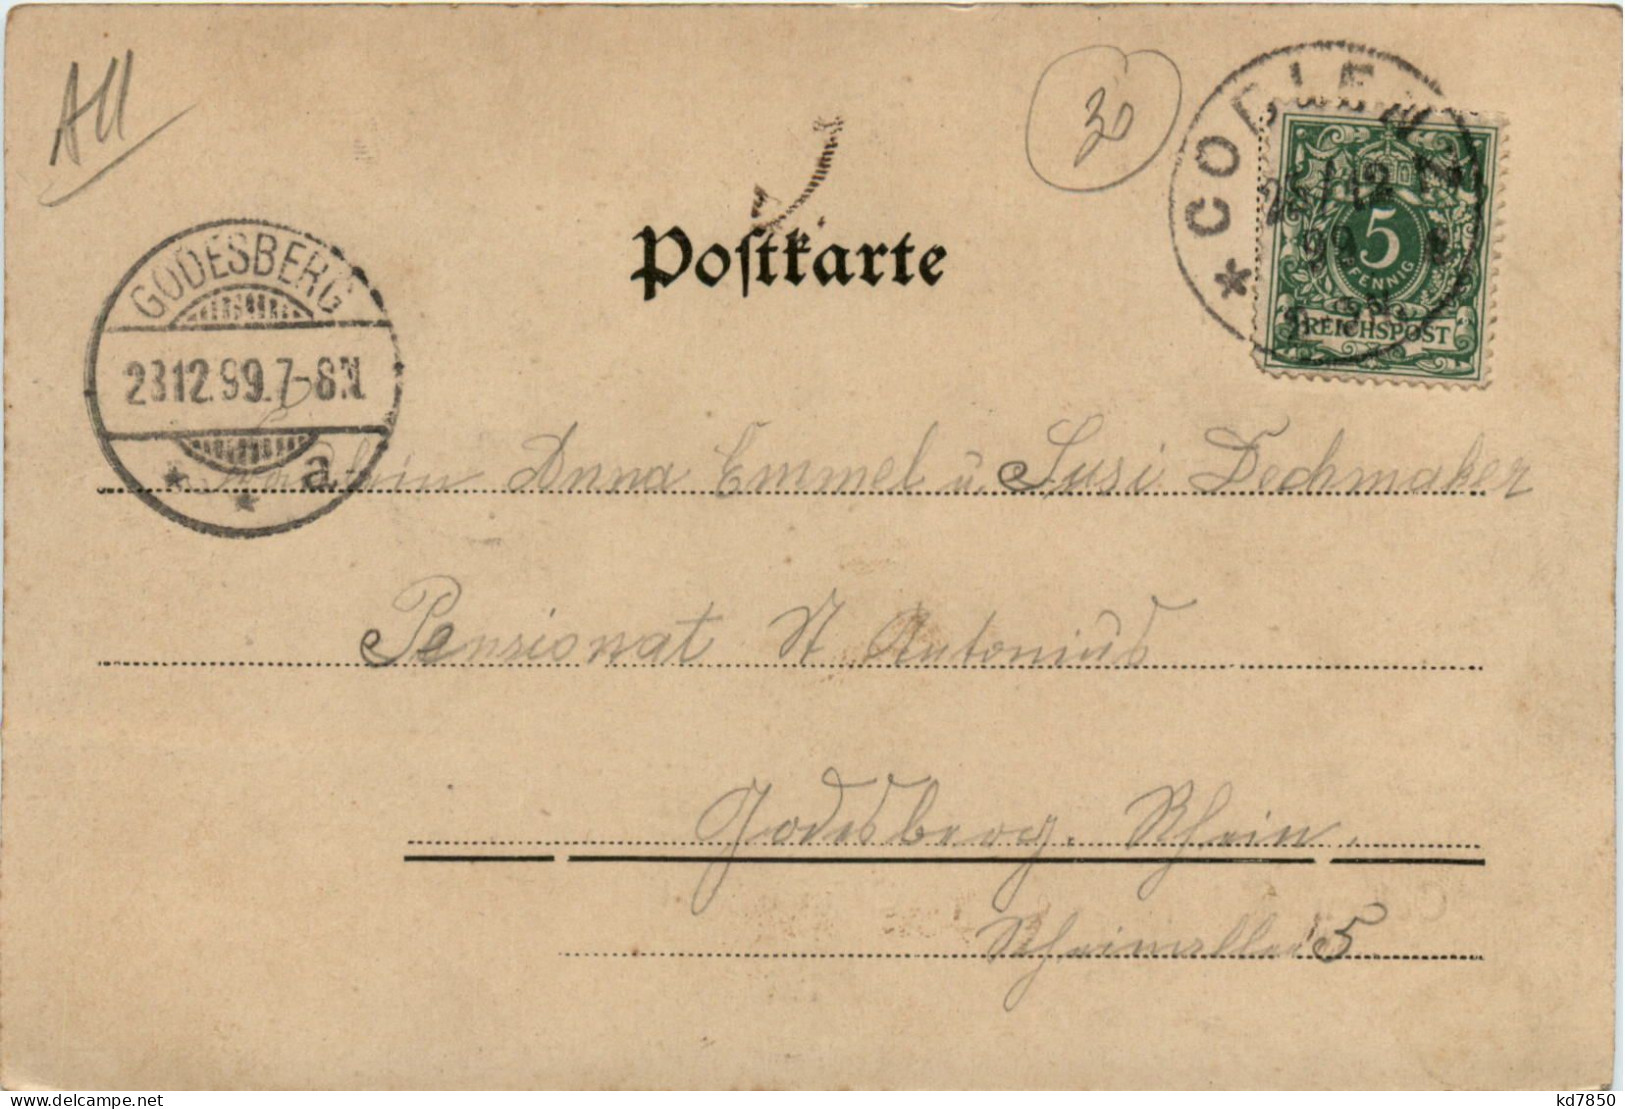 All
30
COBLENZ
12
99
5
PFENNIG
REICHSPOST
Postkarte
GODESBERG
23.12.99.7-8N.
a
Fräulein Anna Emmel u. Susi Dechmaker
Pensionat St Antonius
Godesberg. Rhein.
Rheinallee 5
kd7850